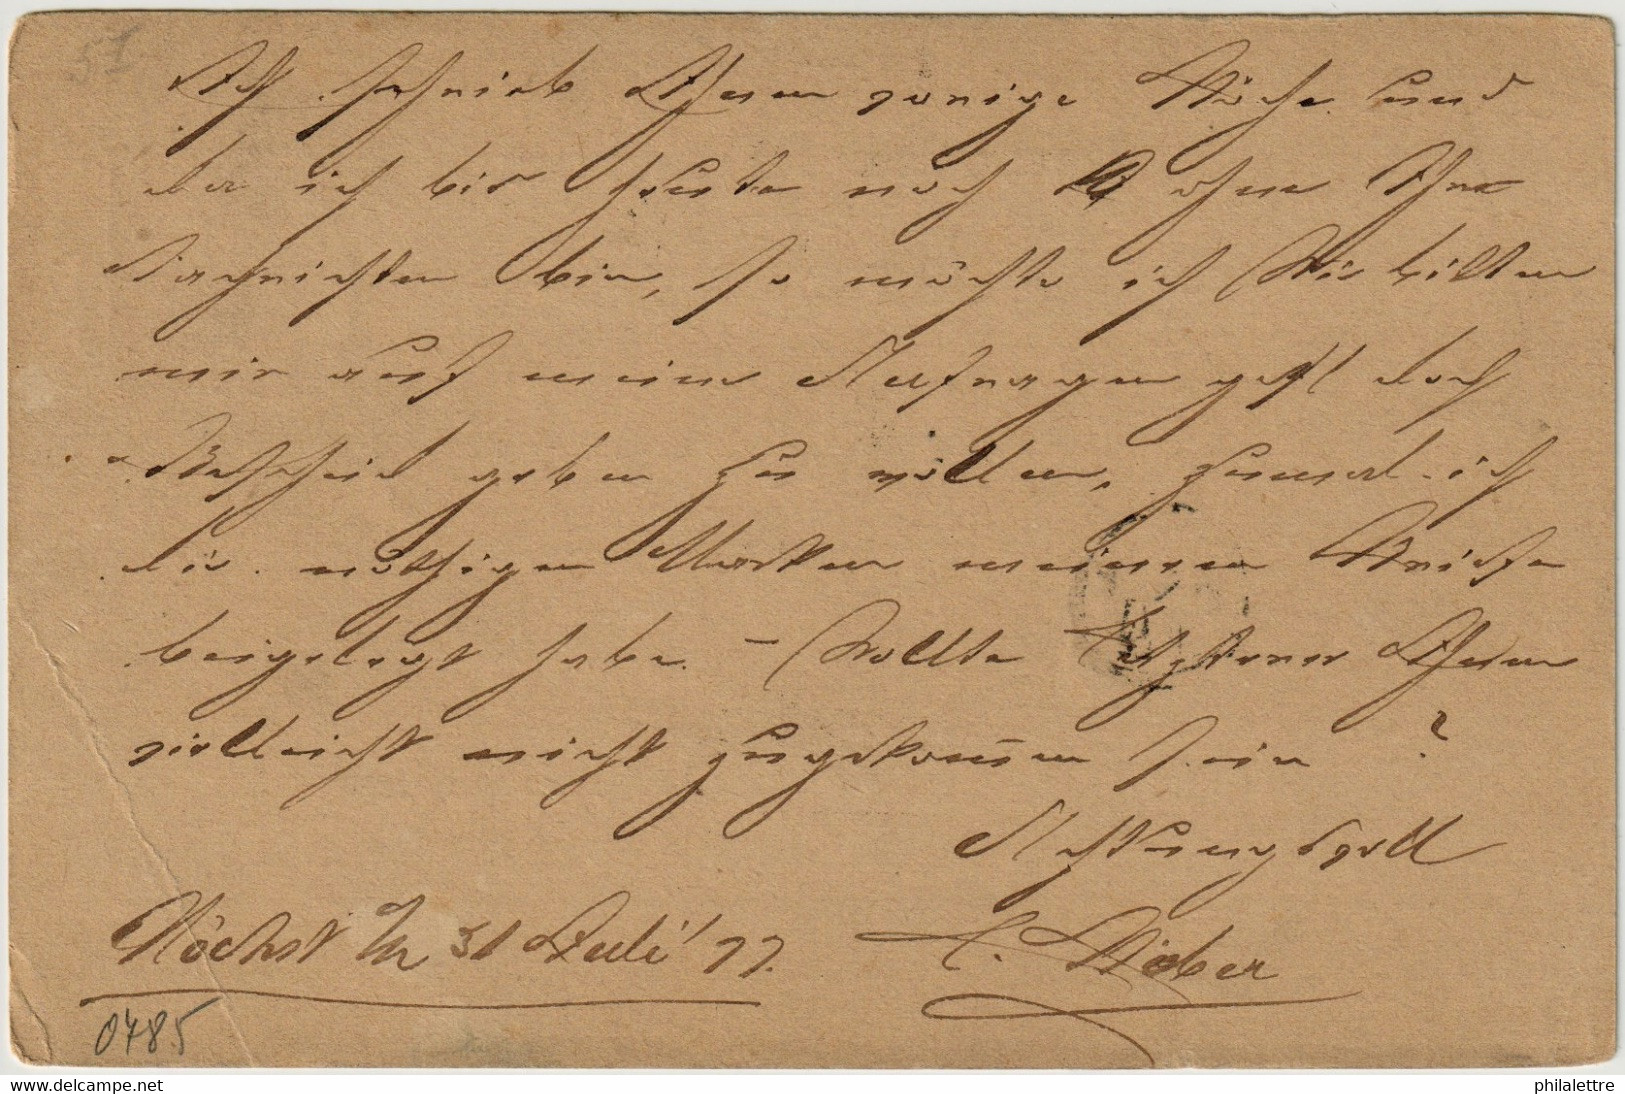 51.
Ich schrieb Ihnen vorige Woche und
da ich bis heute noch ohne Ihre
Nachrichten bin, so möchte ich Sie bitten
mir auf meine Anfragen gefl doch
Bescheid geben zu wollen, zumal ich
die nöthigen Marken meinem Briefe
beigelegt habe. – Sollte letzterer Ihnen
vielleicht nicht zugekom̄en sein?
Achtungsvoll
Höchst a/M 31 Juli '77. C. Weber
0485
www.delcampe.net
philalettre